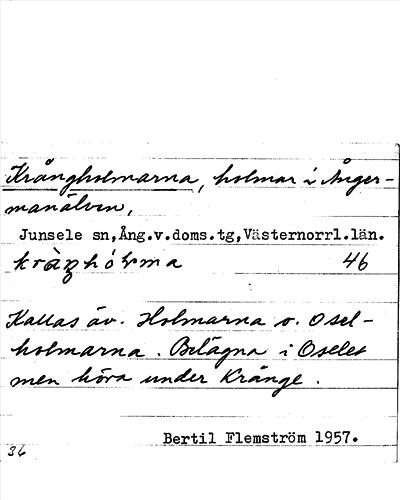 Krångholmarna, holmar i Ånger-
manälven,
Junsele sn,Ång.v.doms.tg,Västernorrl.län.
46
Kallas äv. Holmarna o. Osel-
holmarna. Belägna i Oselet
men höra under Krånge.
Bertil Flemström 1957.
36